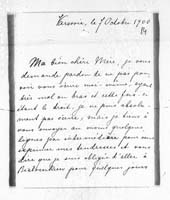 Kersonic, le 7 Octobre 1900
Ma bien chère Mère, je vous
demande pardon de ne pas pou-
voir vous écrire moi-même, ayant
très mal au bras et cette fois-ci
étant le droit, je ne puis absolu-
ment pas écrire, mais je tiens à
vous envoyer au moins quelques
lignes par intermédiaire pour vous
exprimer mes tendresses et vous
dire que je suis obligée d'aller à
pour quelques jours